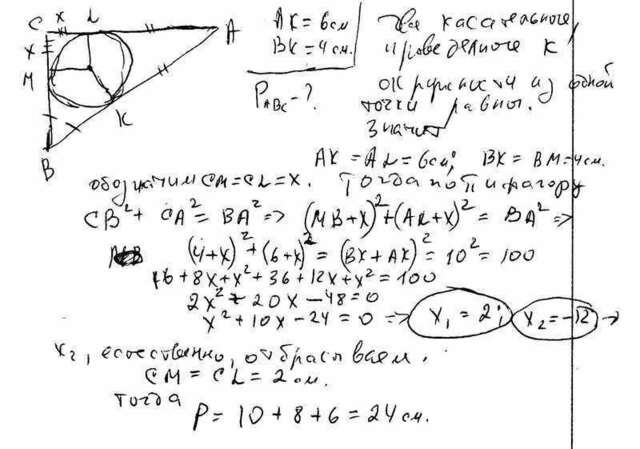 C x L A
x
M
K
B
AK = 6см
BK = 4см.
P_ABC - ?
Две касательные,
проведенные к
окружности из одной
точки равны.
Значит
AK = AL = 6см; BK = BM = 4см.
обозначим CM = CL = x. Тогда по Пифагору
CB² + CA² = BA² => (MB+x)² + (AL+x)² = BA² =>
(4+x)² + (6+x)² = (BK + AK)² = 10² = 100
16 + 8x + x² + 36 + 12x + x² = 100
2x² + 20x - 48 = 0
x² + 10x - 24 = 0 => x₁ = 2; x₂ = -12 →
x₂, естественно, отбрасываем.
CM = CL = 2 см.
тогда
P = 10 + 8 + 6 = 24 см.